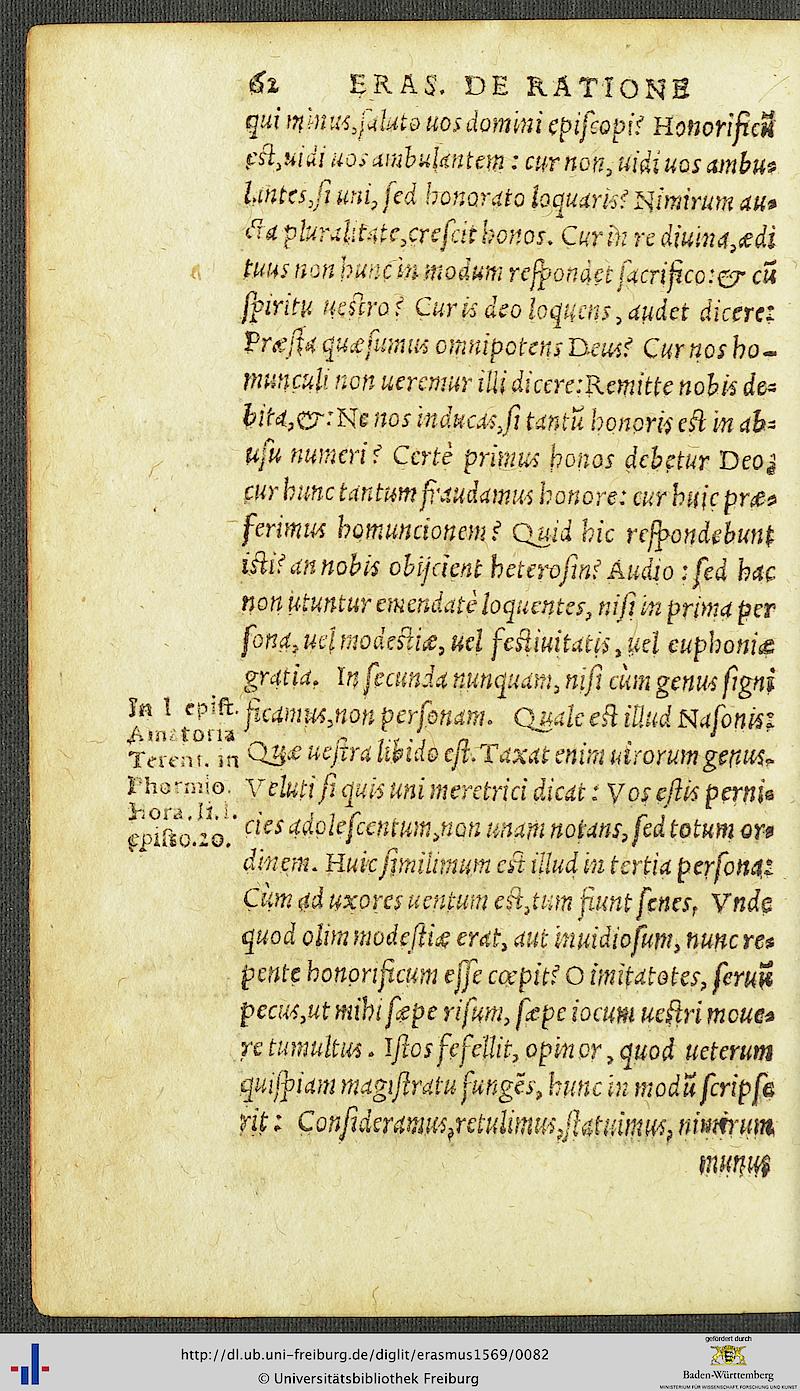 62 ERAS. DE RATIONE
qui minus, ſaluto uos domini epiſcopi? Honorificũ
eſt, uidi uos ambulantem : cur non, uidi uos ambu-
lantes, ſi uni, ſed honorato loquaris? Nimirum au-
cta pluralitate, creſcit honos. Cur in re diuina, ædi
tuus non hunc in modum reſpondet ſacrifico: & cũ
ſpiritu ueſtro? Cur is deo loquens, audet dicere:
Præſta quæſumus omnipotens Deus? Cur nos ho-
munculi non ueremur illi dicere: Remitte nobis de-
bita, &: Ne nos inducas, ſi tantũ honoris eſt in ab-
uſu numeri? Certè primus honos debetur Deo;
cur hunc tantum fraudamus honore: cur huic præ-
ferimus homuncionem? Quid hic reſpondebunt
iſti? an nobis obijcient heteroſin? Audio : ſed hac
non utuntur emendatè loquentes, niſi in prima per
ſona, uel modeſtiæ, uel feſtiuitatis, uel euphoniæ
gratia. In ſecunda nunquam, niſi cùm genus ſigni
ficamus, non perſonam. Quale eſt illud Naſonis:
Quæ ueſtra libido eſt. Taxat enim uirorum genus.
Veluti ſi quis uni meretrici dicat : Vos eſtis perni-
cies adoleſcentum, non unam notans, ſed totum or-
dinem. Huic ſimilimum eſt illud in tertia perſona:
Cùm ad uxores uentum eſt, tum fiunt ſenes, Vnde
quod olim modeſtiæ erat, aut inuidioſum, nunc re-
pente honorificum eſſe cœpit? O imitatotes, ſeruũ
pecus, ut mihi ſæpe riſum, ſæpe iocum ueſtri moue-
re tumultus. Iſtos fefellit, opinor, quod ueterum
quiſpiam magiſtratu fungẽs, hunc in modũ ſcripſe
rit : Conſideramus, retulimus, ſtatuimus, nimirum
munus
In 1 epiſt.
Amatoria
Terent. in
Phormio.
Hora. li. 1.
epiſto. 20.
http://dl.ub.uni-freiburg.de/diglit/erasmus1569/0082
© Universitätsbibliothek Freiburg
gefördert durch
Baden-Württemberg
MINISTERIUM FÜR WISSENSCHAFT, FORSCHUNG UND KUNST